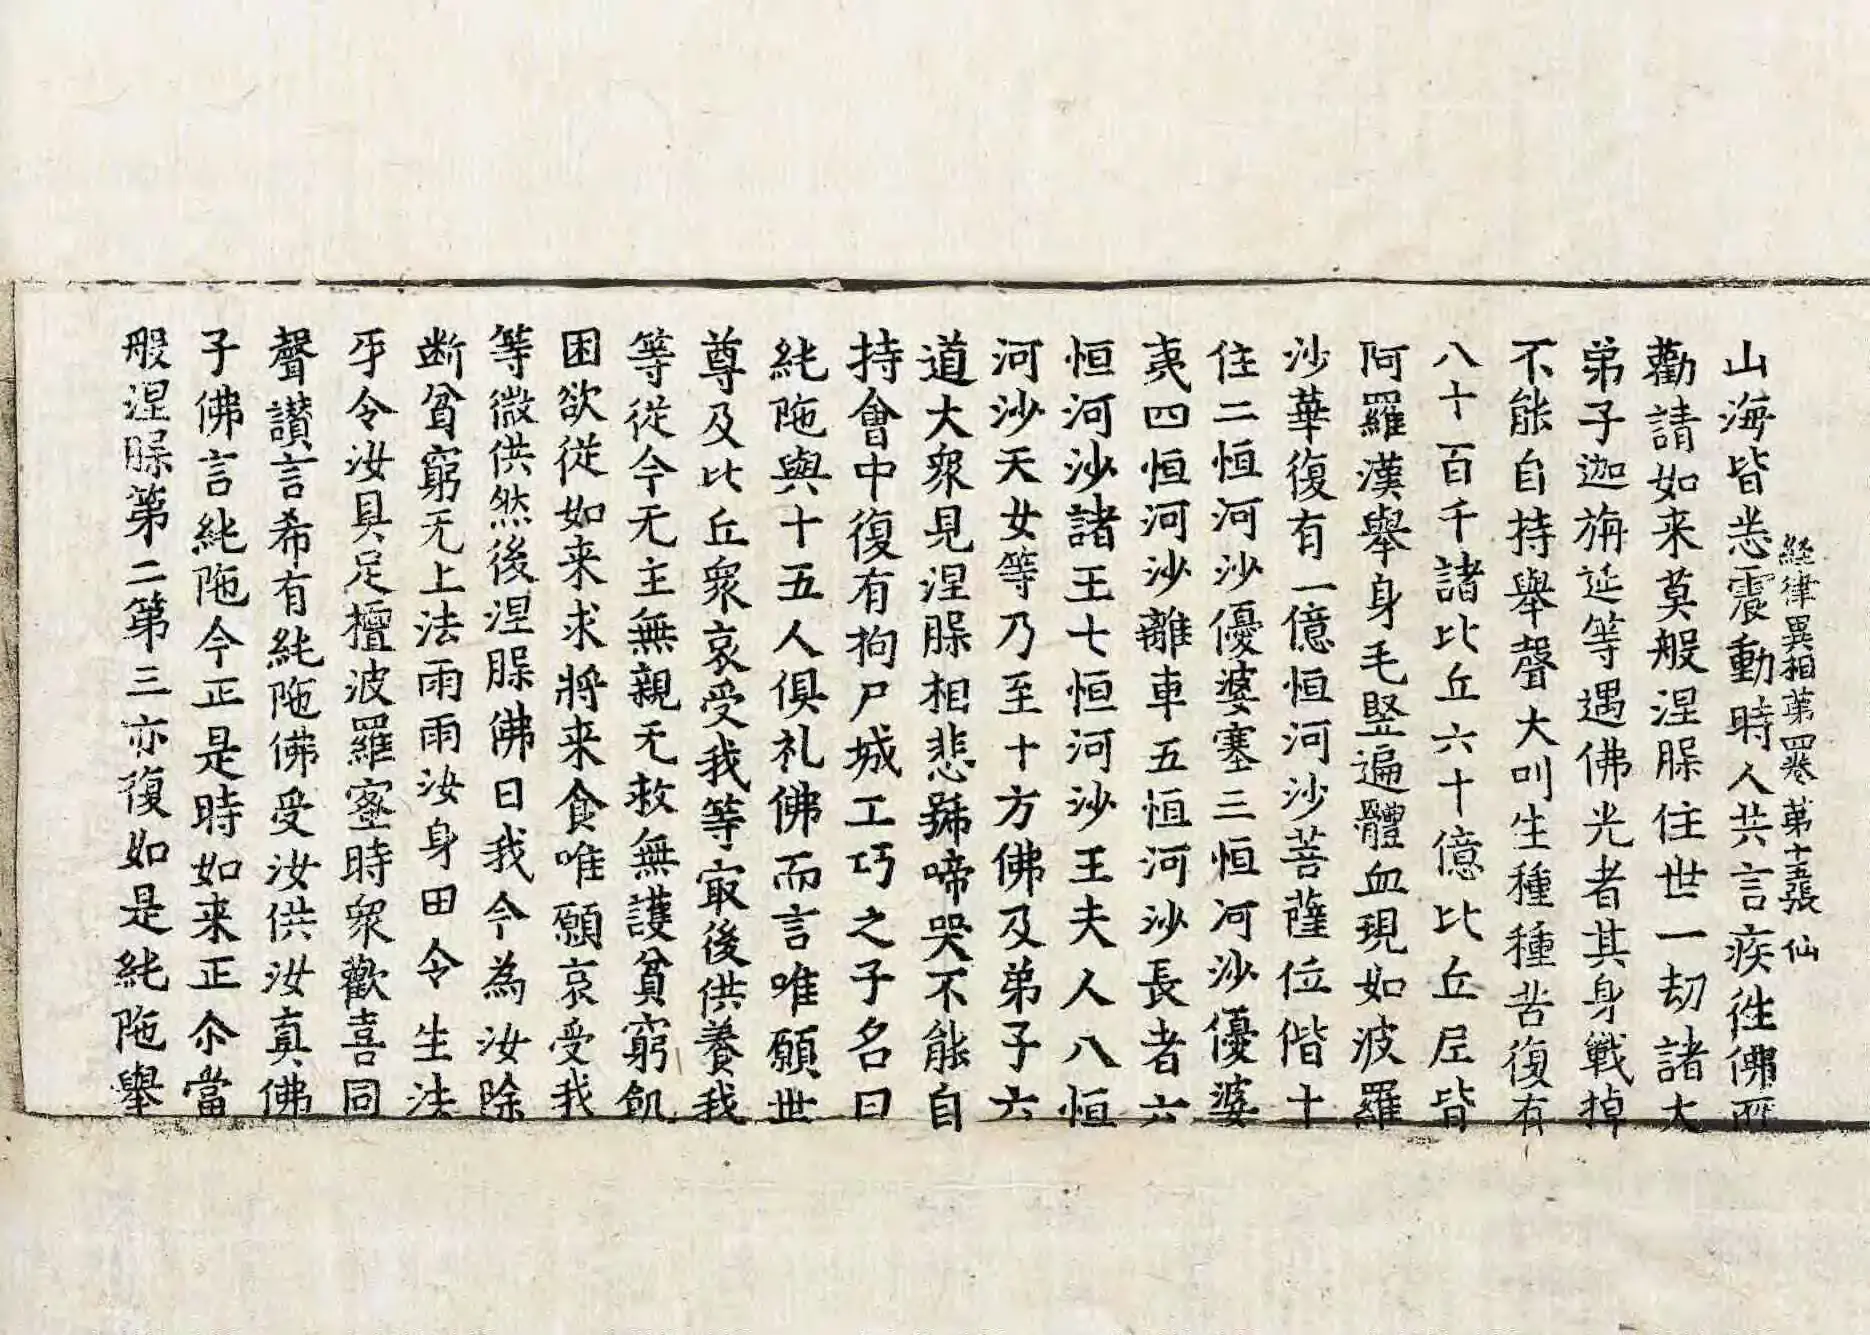 經律異相苐四卷 苐十五張 仙
山海皆悉震動時人共言疾徃佛所
勸請如来莫般涅槃住世一劫諸大
弟子迦旃延等遇佛光者其身戰掉
不能自持舉聲大叫生種種苦復有
八十百千諸比丘六十億比丘尼皆
阿羅漢舉身毛竪遍體血現如波羅
沙華復有一億恒河沙菩薩位階十
住二恒河沙優婆塞三恒河沙優婆
夷四恒河沙離車五恒河沙長者六
恒河沙諸王七恒河沙王夫人八恒
河沙天女等乃至十方佛及弟子六
道大衆見涅槃相悲號啼哭不能自
持會中復有拘尸城工巧之子名曰
純陁與十五人俱礼佛而言唯願世
尊及比丘衆哀受我等㝡後供養我
等從今无主無親无救無護貧窮飢
困欲從如来求將来食唯願哀受我
等微供然後涅槃佛曰我今為汝除
断貧窮无上法雨雨汝身田令生法
牙令汝具足檀波羅蜜時衆歡喜同
聲讃言希有純陁佛受汝供汝真佛
子佛言純陁今正是時如来正尒當
般涅槃第二第三亦復如是純陁舉